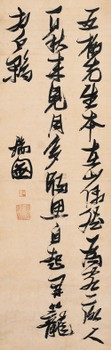 五柳先生本在山偶然為客落人
間秋來見月多歸思自起開籠
放白鷴
瑞圖